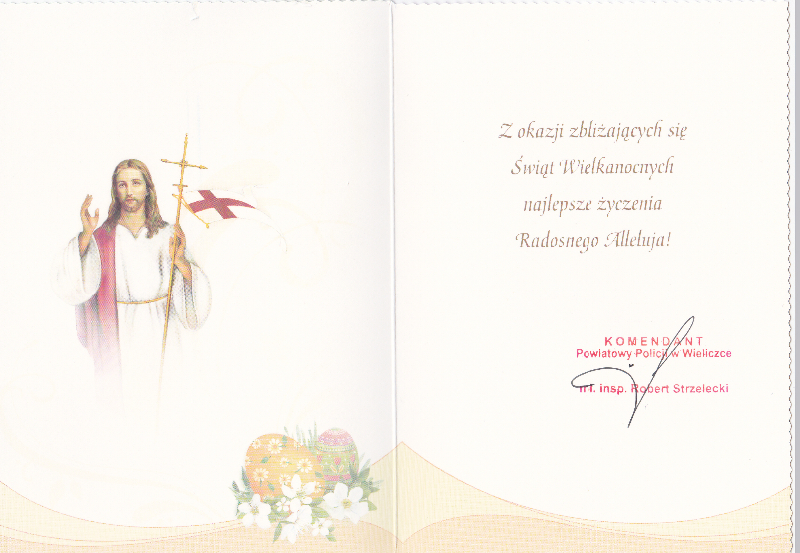 Z okazji zbliżających się
Świąt Wielkanocnych
najlepsze życzenia
Radosnego Alleluja!
KOMENDANT
Powiatowy Policji w Wieliczce
insp. Robert Strzelecki